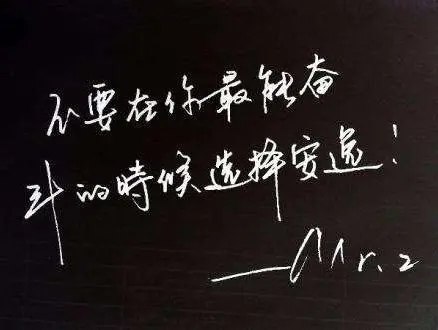 不要在你最能奋
斗的時候选择安逸！
——Mr.2